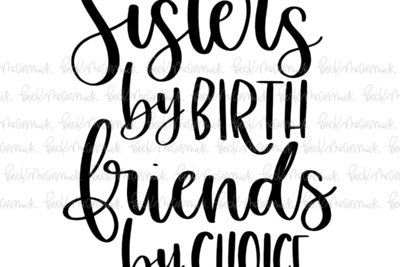 Sisters
by BIRTH
friends
by CHOICE